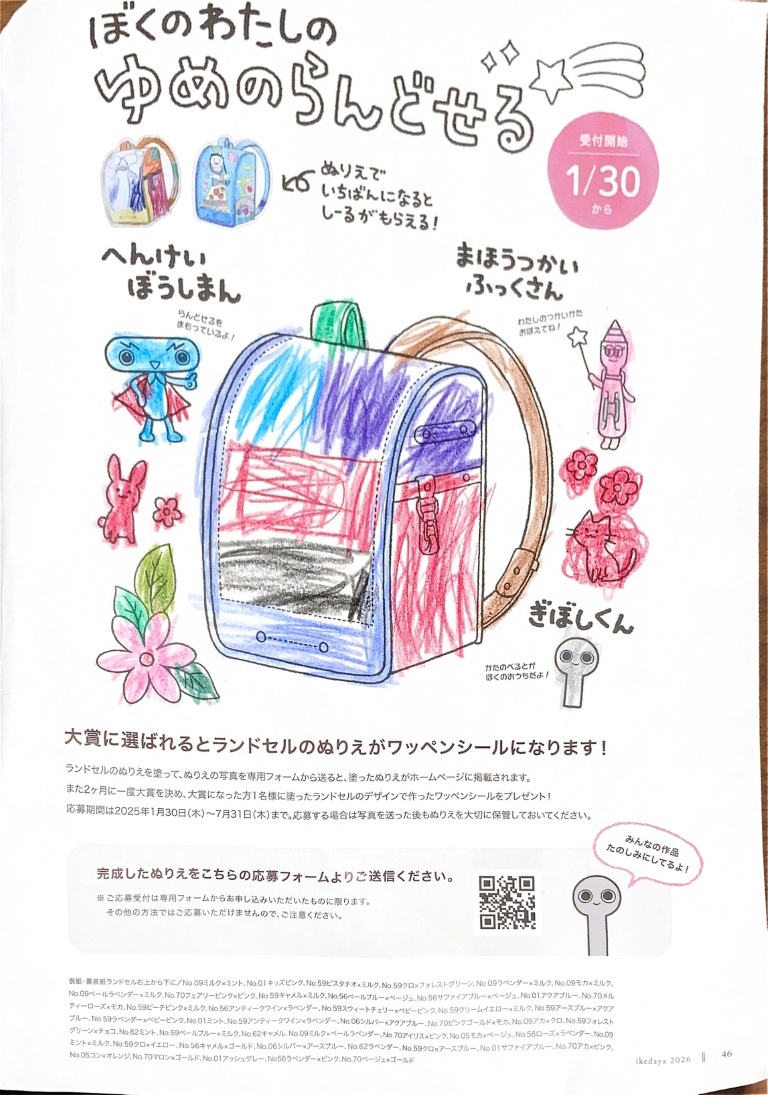 ぼくのわたしの
ゆめのらんどせる
受付開始
1/30
から
ぬりえで
いちばんになると
しーるがもらえる!
へんけい
ぼうしまん
らんどせるを
まもっているよ!
まほうつかい
ふっくさん
わたしのつかいかた
おぼえてね!
ぎぼしくん
かたのべるとが
ぼくのおうちだよ!
大賞に選ばれるとランドセルのぬりえがワッペンシールになります!
ランドセルのぬりえを塗って、ぬりえの写真を専用フォームから送ると、塗ったぬりえがホームページに掲載されます。
また2ヶ月に一度大賞を決め、大賞になった方1名様に塗ったランドセルのデザインで作ったワッペンシールをプレゼント!
応募期間は2025年1月30日(木)~7月31日(木)まで。応募する場合は写真を送った後もぬりえを大切に保管しておいてください。
みんなの作品
たのしみにしてるよ!
完成したぬりえをこちらの応募フォームよりご送信ください。
※ご応募受付は専用フォームからお申し込みいただいたものに限ります。
その他の方法ではご応募いただけませんので、ご注意ください。
表紙・裏表紙ランドセル右上から下に/No.09ミルク×ミント、No.01キッズピンク、No.59ピスタチオ×ミルク、No.59クロ×フォレストグリーン、No.09ラベンダー×ミルク、No.09モカ×ミルク、
No.09ペールラベンダー×ミルク、No.70フェアリーピンク×ピンク、No.59キャメル×ミルク、No.56ペールブルー×ベージュ、No.56サファイアブルー×ベージュ、No.01アクアブルー、No.70メル
ティーローズ×モカ、No.59ピーチピンク×ミルク、No.56アンティークワイン×ラベンダー、No.59スウィートチェリー×ベビーピンク、No.59クリームイエロー×ミルク、No.59アースブルー×アクア
ブルー、No.59ラベンダー×ベビーピンク、No.01ミント、No.59アンティークワイン×ラベンダー、No.06シルバー×アクアブルー、No.70ピンクゴールド×モカ、No.09アカ×クロ、No.59フォレスト
グリーン×チョコ、No.62ミント、No.59ペールブルー×ミルク、No.62キャメル、No.09ミルク×ペールラベンダー、No.70アイリス×ピンク、No.05モカ×ベージュ、No.56ローズ×ラベンダー、No.09
ミント×ミルク、No.59クロ×イエロー、No.56キャメル×ゴールド、No.06シルバー×アースブルー、No.62ラベンダー、No.59クロ×アースブルー、No.01サファイアブルー、No.70アカ×ピンク、
No.05コン×オレンジ、No.70マロン×ゴールド、No.01アッシュグレー、No56ラベンダー×ピンク、No.70ベージュ×ゴールド
ikedaya 2026 46